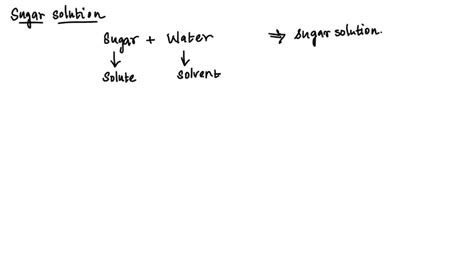 Sugar solution
Sugar + Water ⇒ Sugar solution.
↓ ↓
Solute Solvent